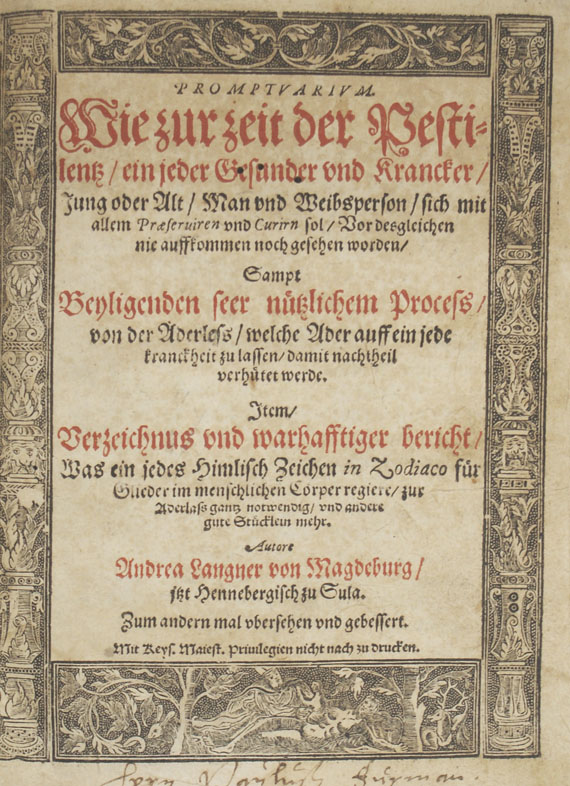 PROMPTVARIVM.
Wie zur zeit der Pesti-
lentz / ein jeder Gesunder vnd Krancker /
Jung oder Alt / Man vnd Weibsperson / sich mit
allem Præseruiren vnd Curirn sol / Vor desgleichen
nie auffkommen noch gesehen worden /
Sampt
Beyligenden seer nützlichem Process /
von der Aderless / welche Ader auff ein jede
kranckheit zu lassen / damit nachtheil
verhütet werde.
Item /
Verzeichnus vnd warhafftiger bericht /
Was ein jedes Himlisch Zeichen in Zodiaco für
Glieder im menschlichen Cörper regiere / zur
Aderlass gantz notwendig / vnd andere
gute Stücklein mehr.
Autore
Andrea Langner von Magdeburg /
jtzt Hennebergisch zu Sula.
Zum andern mal vbersehen vnd gebessert.
Mit Keys. Maiest. Priuilegien nicht nach zu drucken.